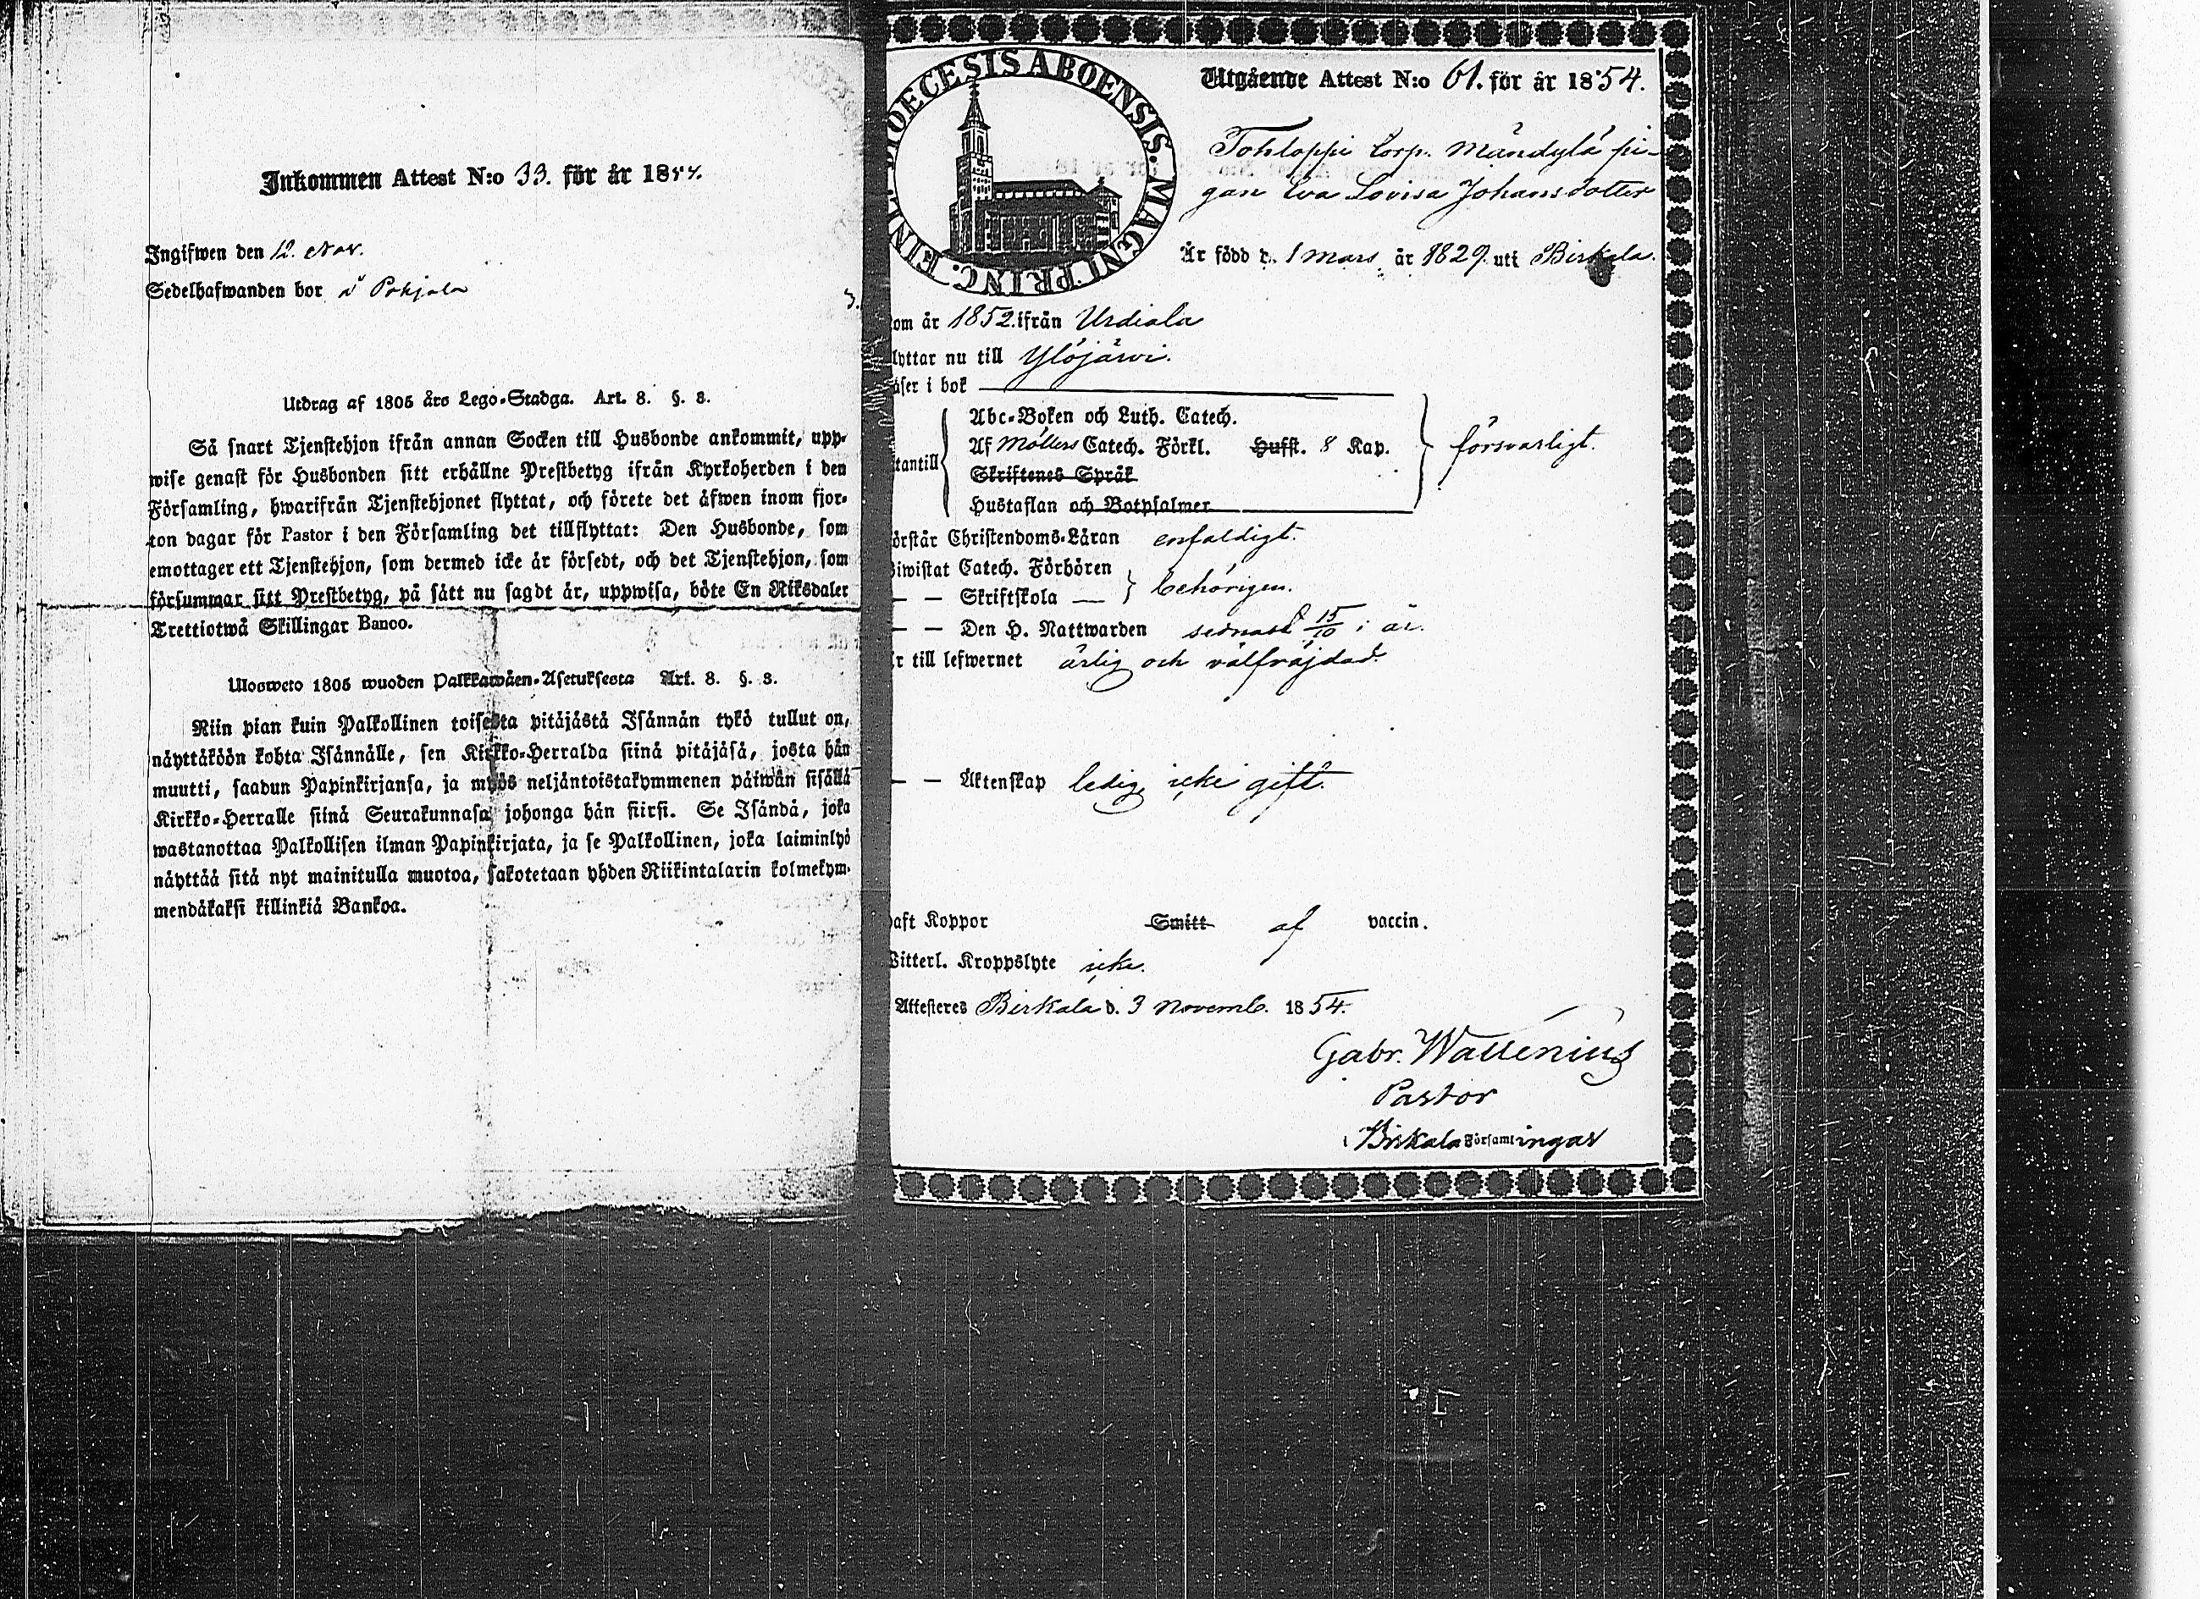 Inkommen Attest N:o 33. för år 1854.
Ingifwen den 12. Nov.
Sedelhafwanden bor å Pohjola
Utdrag af 1805 års Lego-Stadga. Art. 8. §. 3.
Så snart Tjenstehjon ifrån annan Socken till Husbonde ankommit, upp-
wise genast för Husbonden sitt erhållne Prestbetyg ifrån Kyrkoherden i den
Församling, hwarifrån Tjenstehjonet flyttat, och förete det äfwen inom fjor-
ton dagar för Pastor i den Församling det tillflyttat: Den Husbonde, som
emottager ett Tjenstehjon, som dermed icke är försedt, och det Tjenstehjon, som
försummar sitt Prestbetyg, på sätt nu sagdt är, uppwisa, böte En Riksdaler
Trettiotwå Skillingar Banco.
Ulosweto 1805 wuoden Palkkawäen-Asetuksesta Art. 8. §. 3.
Niin pian kuin Palkollinen toisesta pitäjästä Isännän tykö tullut on,
näyttäköön kohta Isännälle, sen Kirkko-Herralda siinä pitäjäsä, josta hän
muutti, saadun Papinkirjansa, ja myös neljäntoistakymmenen päiwän sisällä
Kirkko-Herralle siinä Seurakunnasa johonga hän siirsi. Se Isändä, joka
wastanottaa Palkollisen ilman Papinkirjata, ja se Palkollinen, joka laiminlyö
näyttää sitä nyt mainitulla muotoa, sakotetaan yhden Riikintalarin kolmekym-
mendäkaksi killinkiä Bankoa.
DIOECESIS ABOENSIS. MAGNI PRINC. FINL.
Utgående Attest N:o 61. för år 1854.
Tohloppi torp. Mändylä pi-
gan Eva Lovisa Johansdotter
Är född d. 1 mars år 1829. uti Birkala.
om år 1852. ifrån Urdiala
lyttar nu till Ylöjärvi.
äser i bok
Abc-Boken och Luth. Catech.
Af Möllers Catech. Förkl. Husst. 8 Kap.
Skriftenes Språk
Hustaflan och Botpsalmer
tantill
försvarligt.
örstår Christendoms-Läran enfaldigt.
Biwistat Catech. Förhören
— — Skriftskola — behörigen.
— — Den H. Nattwarden sednast 15/10 i år.
r till lefwernet ärlig och välfräjdad.
— — Äktenskap ledig icke gift.
haft Koppor Smitt af vaccin.
Witterl. Kroppslyte icke.
Attesteres Birkala d. 3 Novemb. 1854.
Gabr. Wallenius
Pastor
i Birkala Församlingar